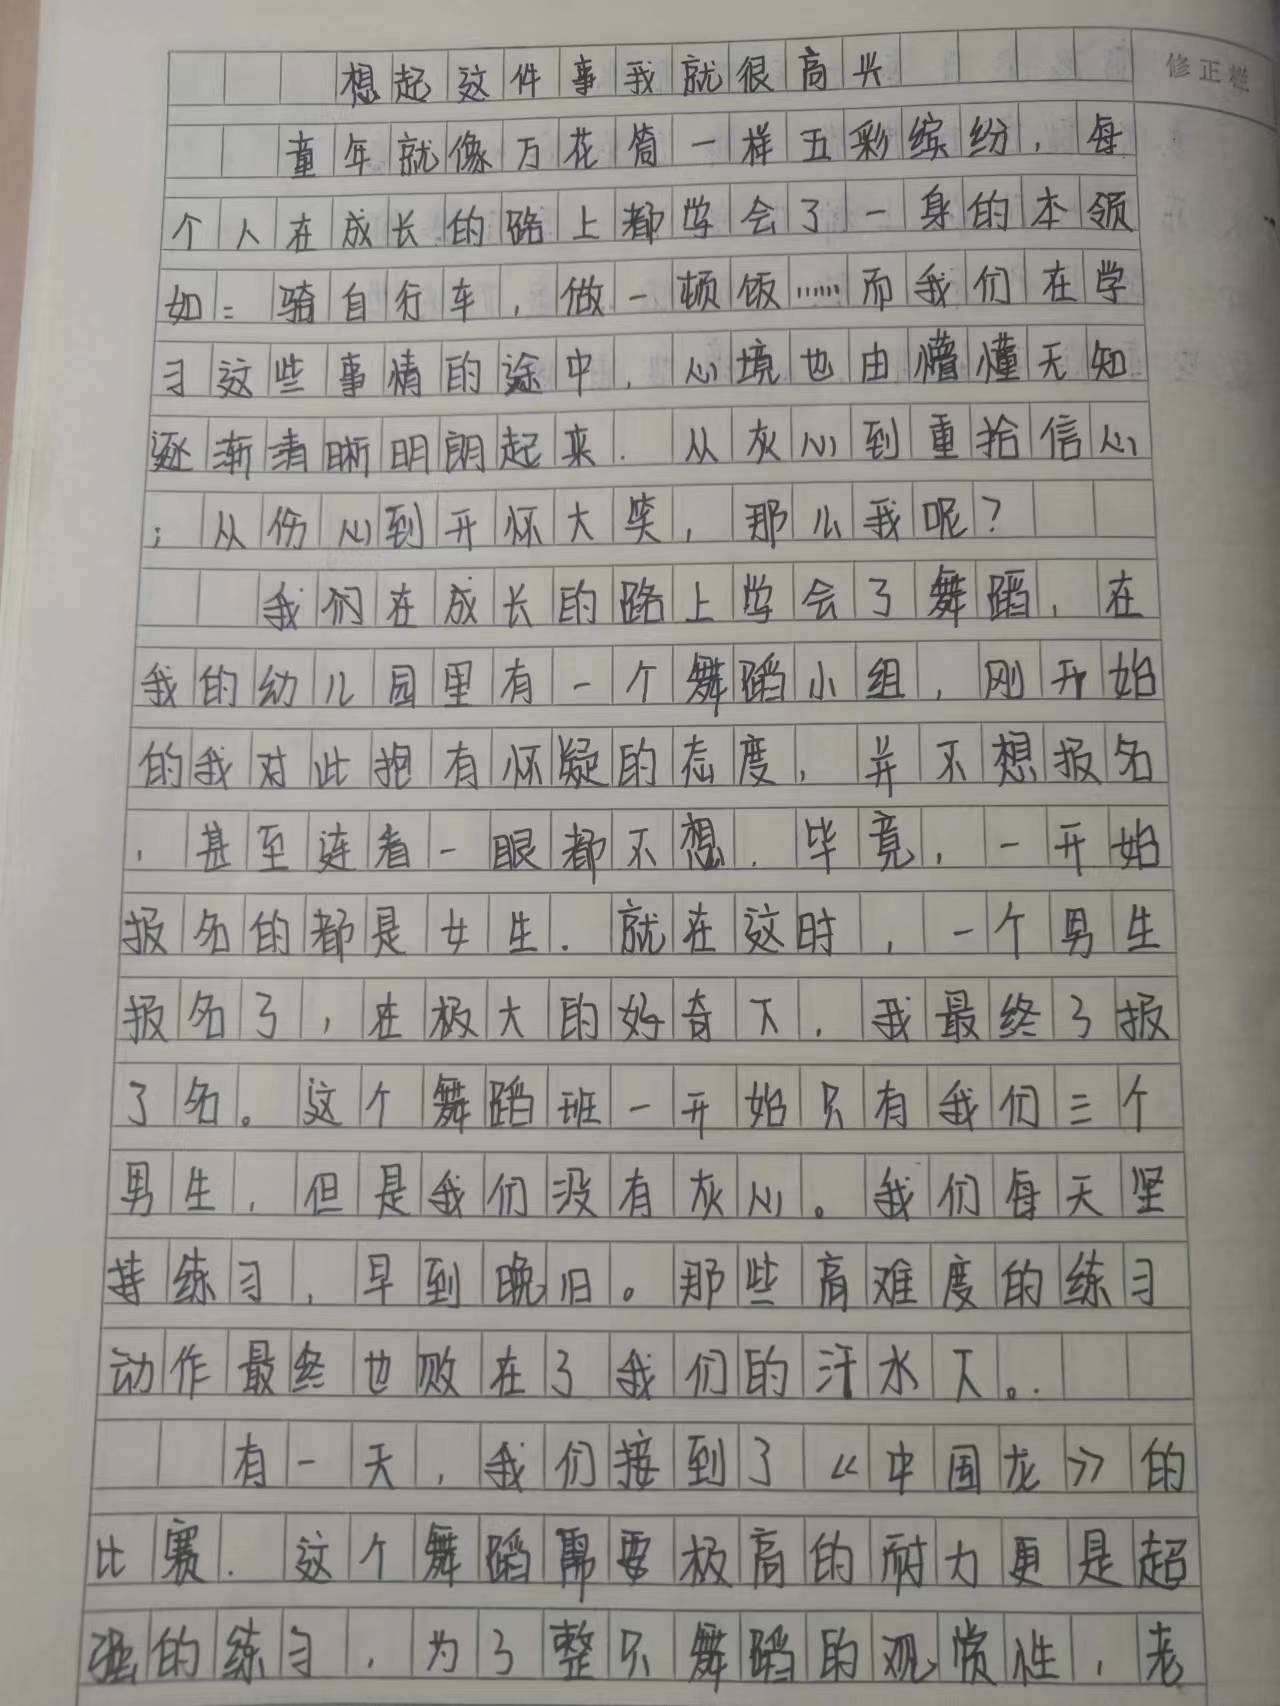 修正栏
想起这件事我就很高兴
童年就像万花筒一样五彩缤纷，每
个人在成长的路上都学会了一身的本领
如：骑自行车，做一顿饭……而我们在学
习这些事情的途中，心境也由懵懂无知
逐渐清晰明朗起来．从灰心到重拾信心
；从伤心到开怀大笑，那么我呢？
我们在成长的路上学会了舞蹈，在
我的幼儿园里有一个舞蹈小组，刚开始
的我对此抱有怀疑的态度，并不想报名
，甚至连看一眼都不想．毕竟，一开始
报名的都是女生．就在这时，一个男生
报名了，在极大的好奇下，我最终了报
了名。这个舞蹈班一开始只有我们三个
男生，但是我们没有灰心。我们每天坚
持练习，早到晚归。那些高难度的练习
动作最终也败在了我们的汗水下。
有一天，我们接到了《中国龙》的
比赛．这个舞蹈需要极高的耐力更是超
强的练习，为了整只舞蹈的观赏性，老